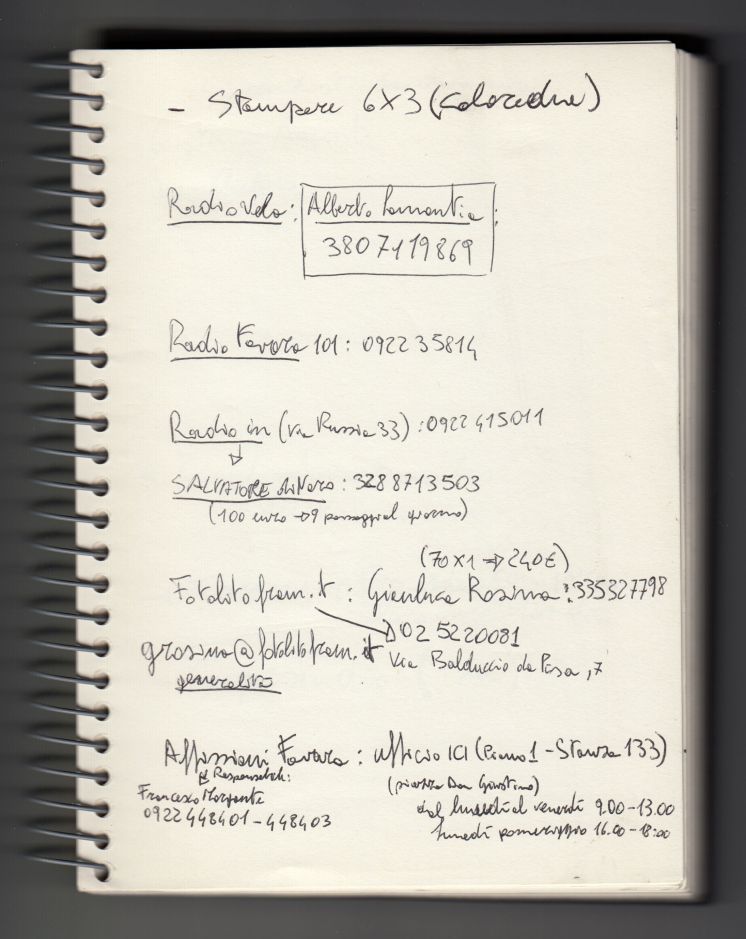 - Stampare 6x3 (
Radio Vela: Alberto Lamantia:
3807119869
Radio Favara 101: 0922 35814
Radio in (via Russia 33): 0922 415011
SALVATORE diNoro: 3288713503
(100 euro → 9 passaggi al giorno)
(70x1 ⇒ 240€)
Fotolitofram.it: Gianluca Rosina: 335327798
02 5220081
grosina@fotolitofram.it Via Balduccio da Pisa, 7
generalità
Affissioni Favara: ufficio ICI (Piano 1 - Stanza 133)
Responsabili: (piazza Don Giustino)
Francesco Morgante dal lunedì al venerdì 9.00-13.00
0922 448401-448403 lunedì pomeriggio 16.00-18:00